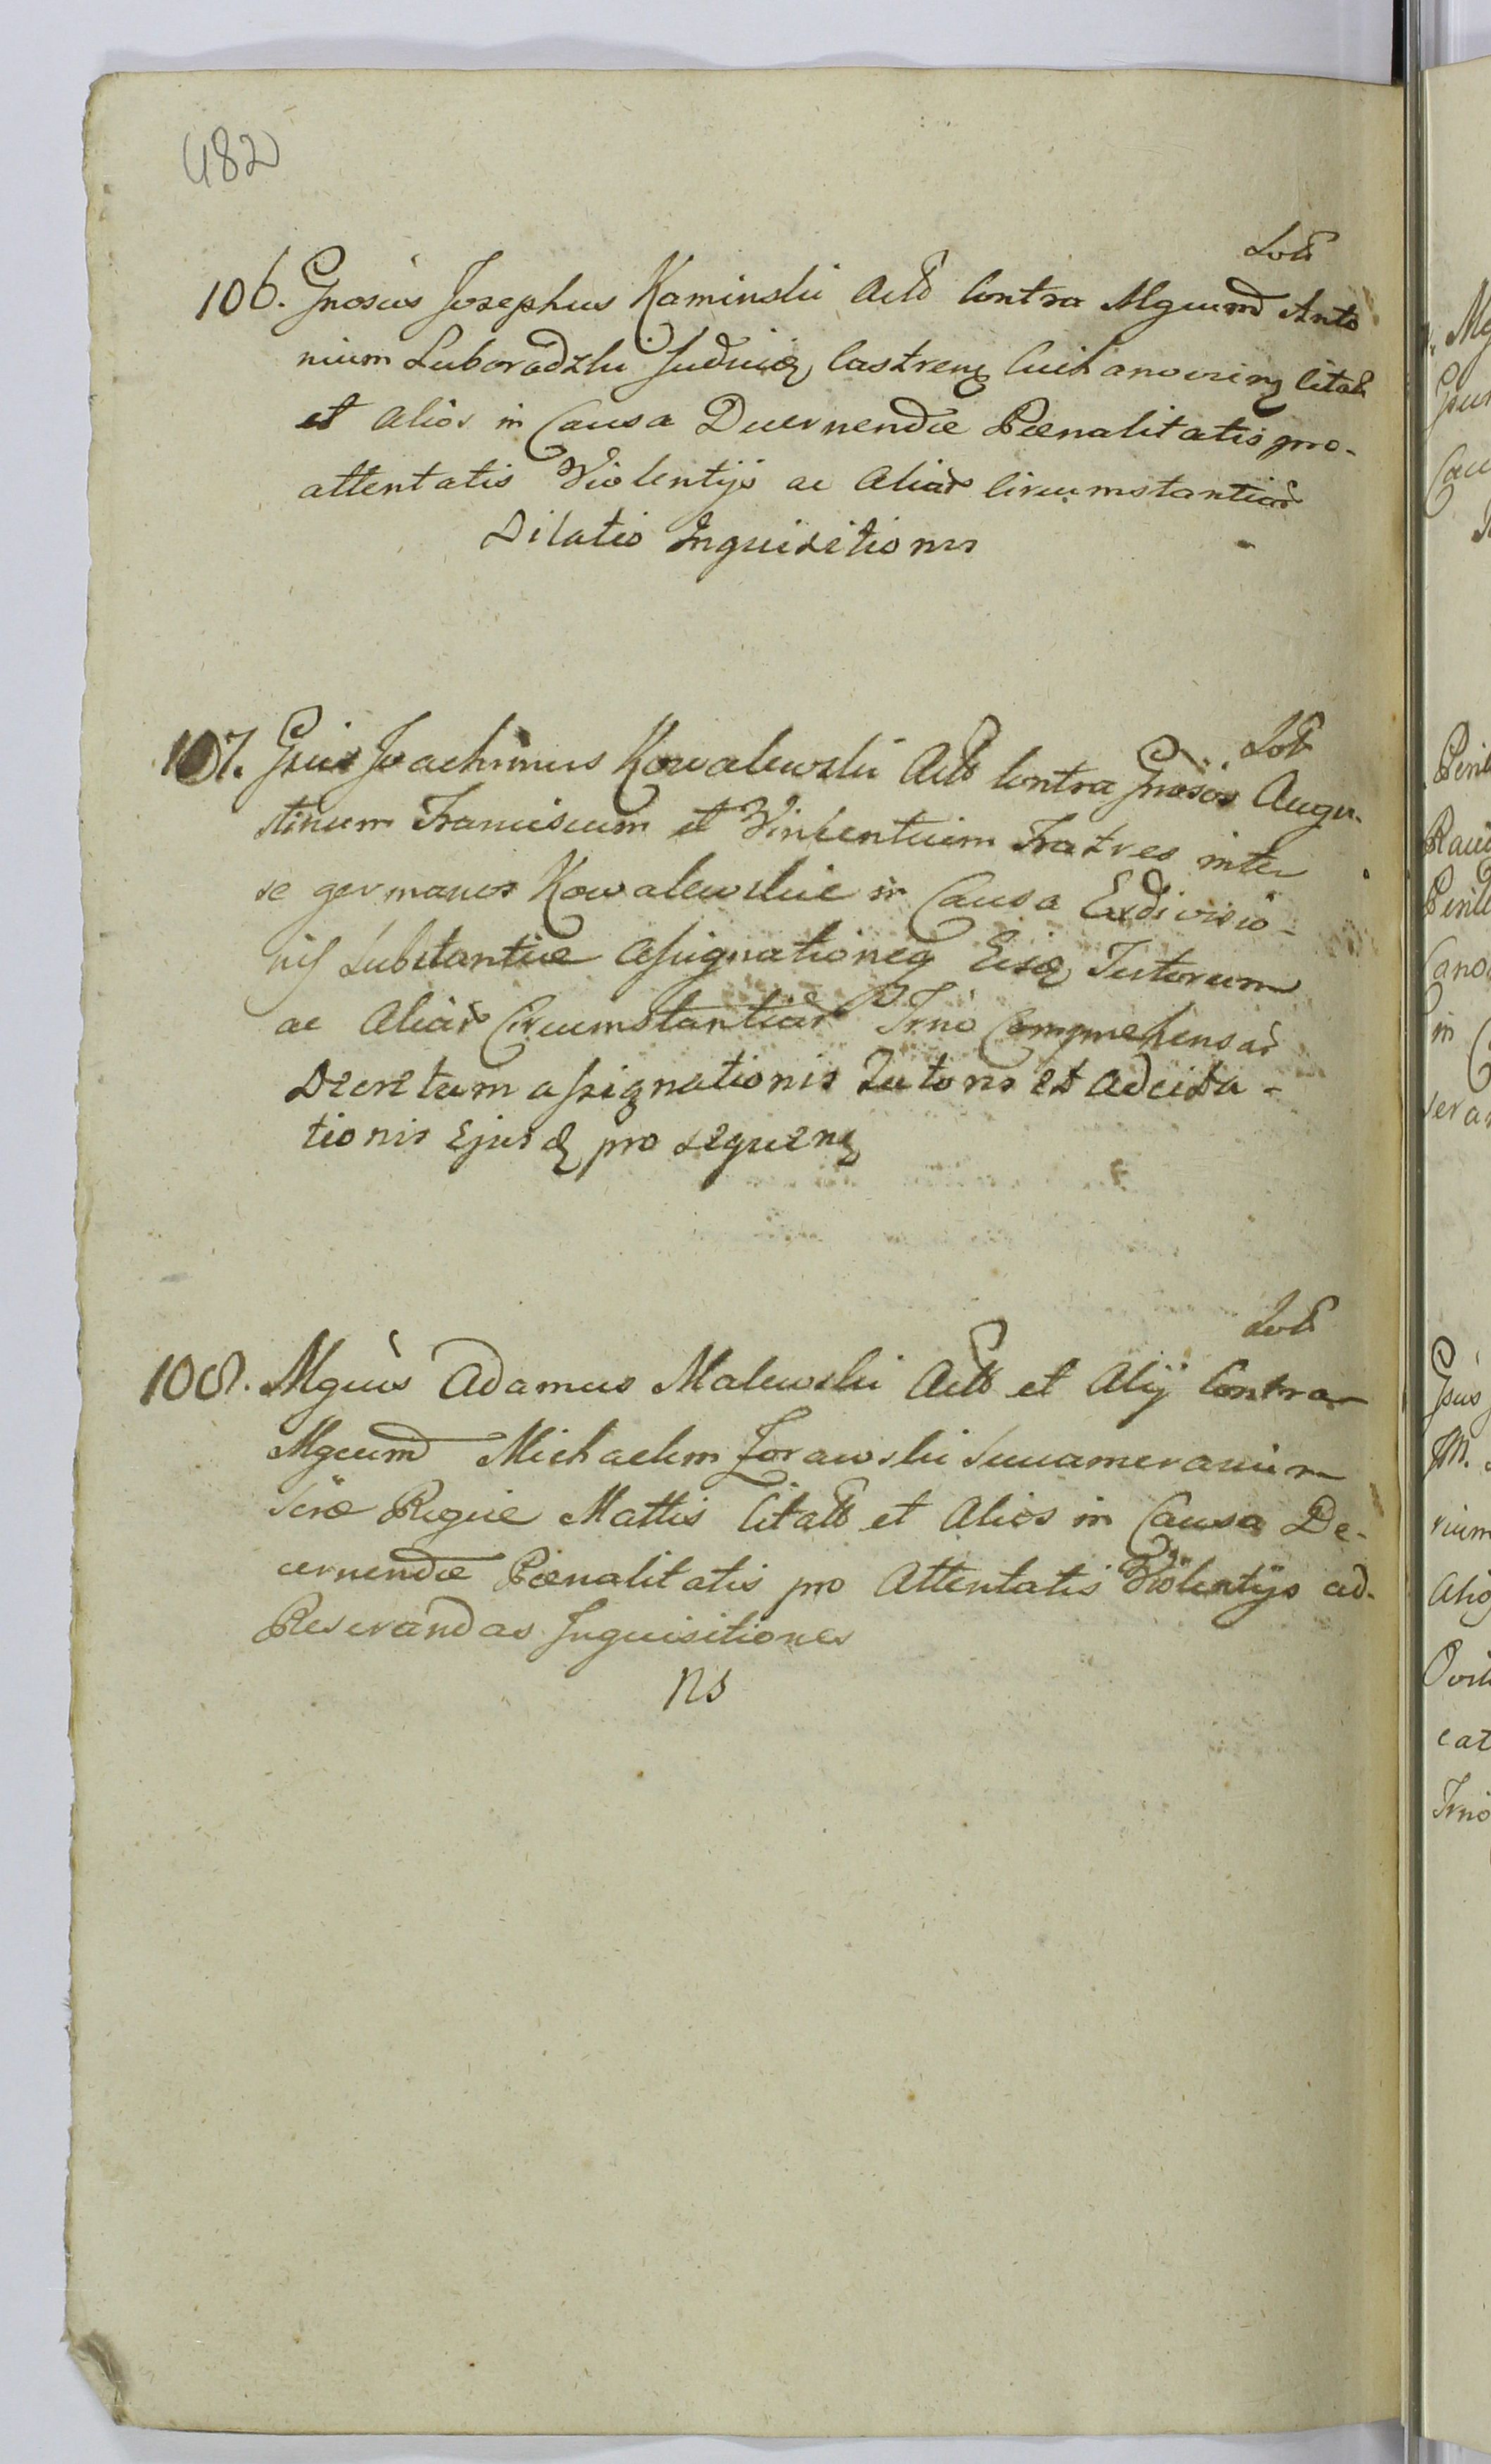 482
Lot
106. Gnosus Josephus Kaminski Actt Contra Mgcum Anto
nium Luboradzki Judicie Castrens Ciechanoviens Citatt
et alios in Causa Decernendæ Pœnalitatis pro-
attentatis Violentijs ac aliar circumstantiar
Dilatio Inquisitionis
Lot
107. Gsus Joachimus Kowalewski Actt Contra Gnosos Augu-
stinum Franciscum et Vincentium Fratres inter
se germanos Kowalewskie in Causa Exdivisio-
nis Substantiæ Assignationeq Eisd Tutorum
ac aliar Circumstantiar Trno Comprehensar
Decretum assignationis Tutoris et adcita-
tionis Ejusd pro sequens
Lot
108. Mgcus Adamus Malewski Actt et Alij Contra
Mgcum Michaelem Zorawski Succamerarium
Scræ Regiæ Mattis Citatt et Alios in Causa De-
cernendæ Pœnalitatis pro Attentatis Violentijs ad-
Reserandas Inquisitiones
ns